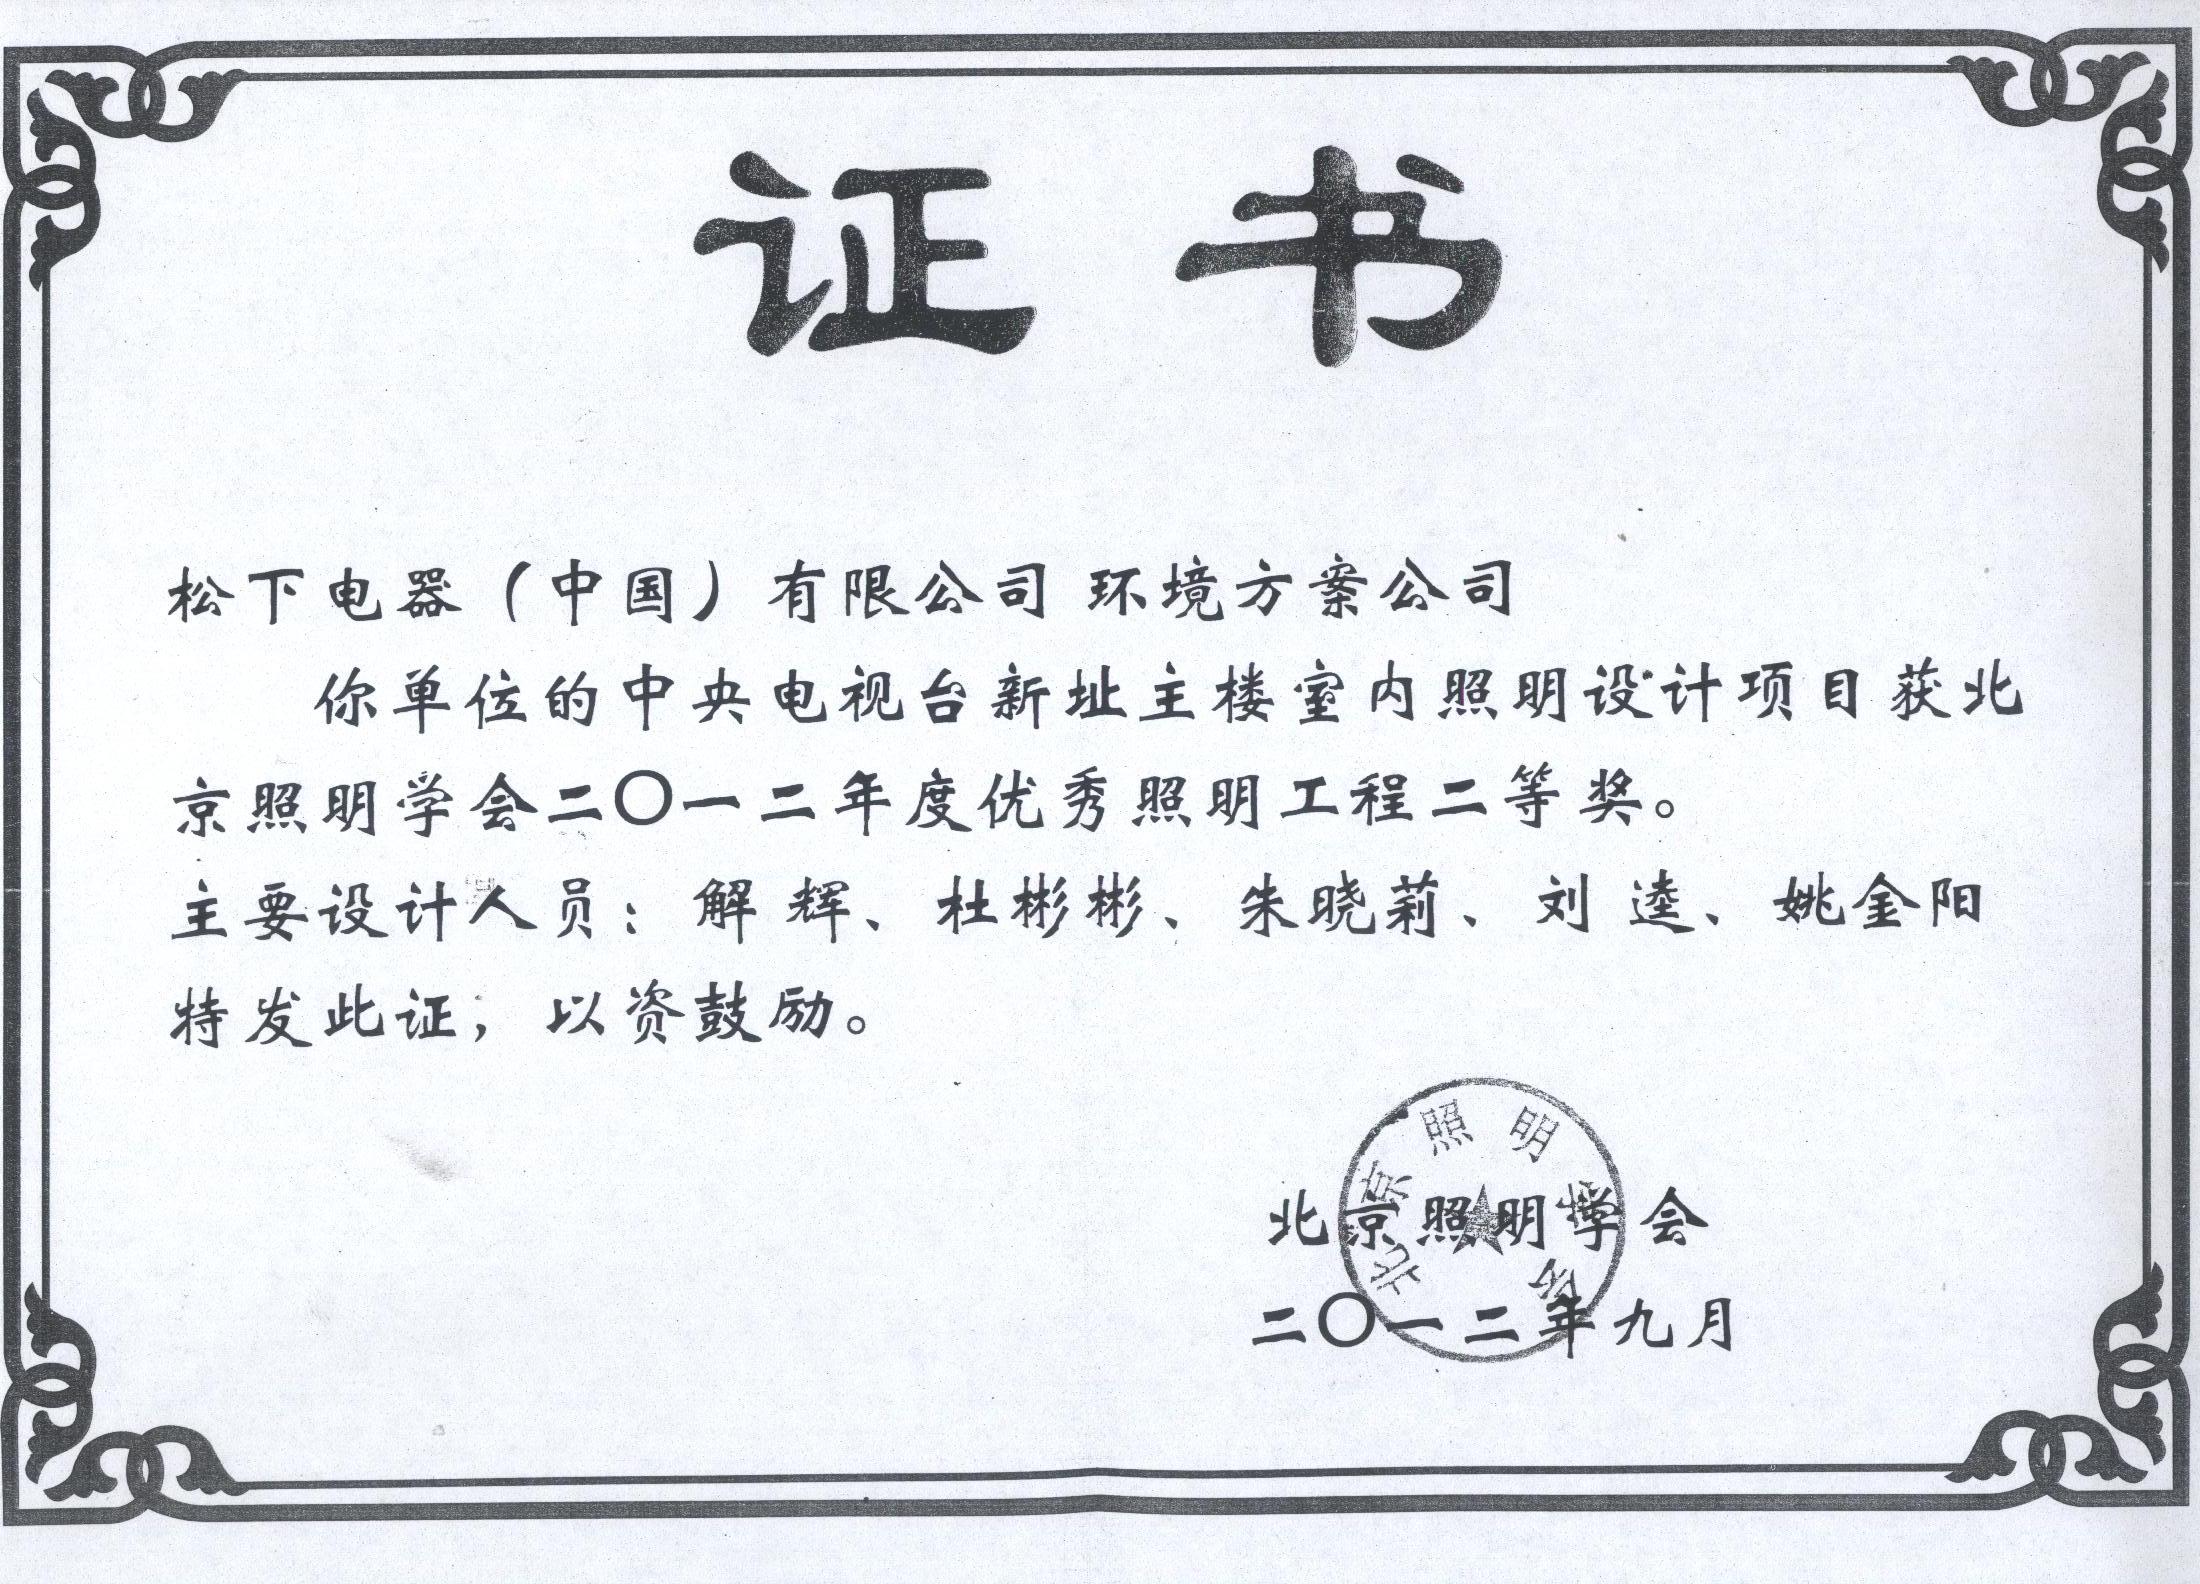 证书
松下电器（中国）有限公司 环境方案公司
你单位的中央电视台新址主楼室内照明设计项目获北
京照明学会二〇一二年度优秀照明工程二等奖。
主要设计人员：解 辉、杜彬彬、朱晓莉、刘 逵、姚金阳
特发此证，以资鼓励。
北京照明学会
北京照明学会
二〇一二年九月